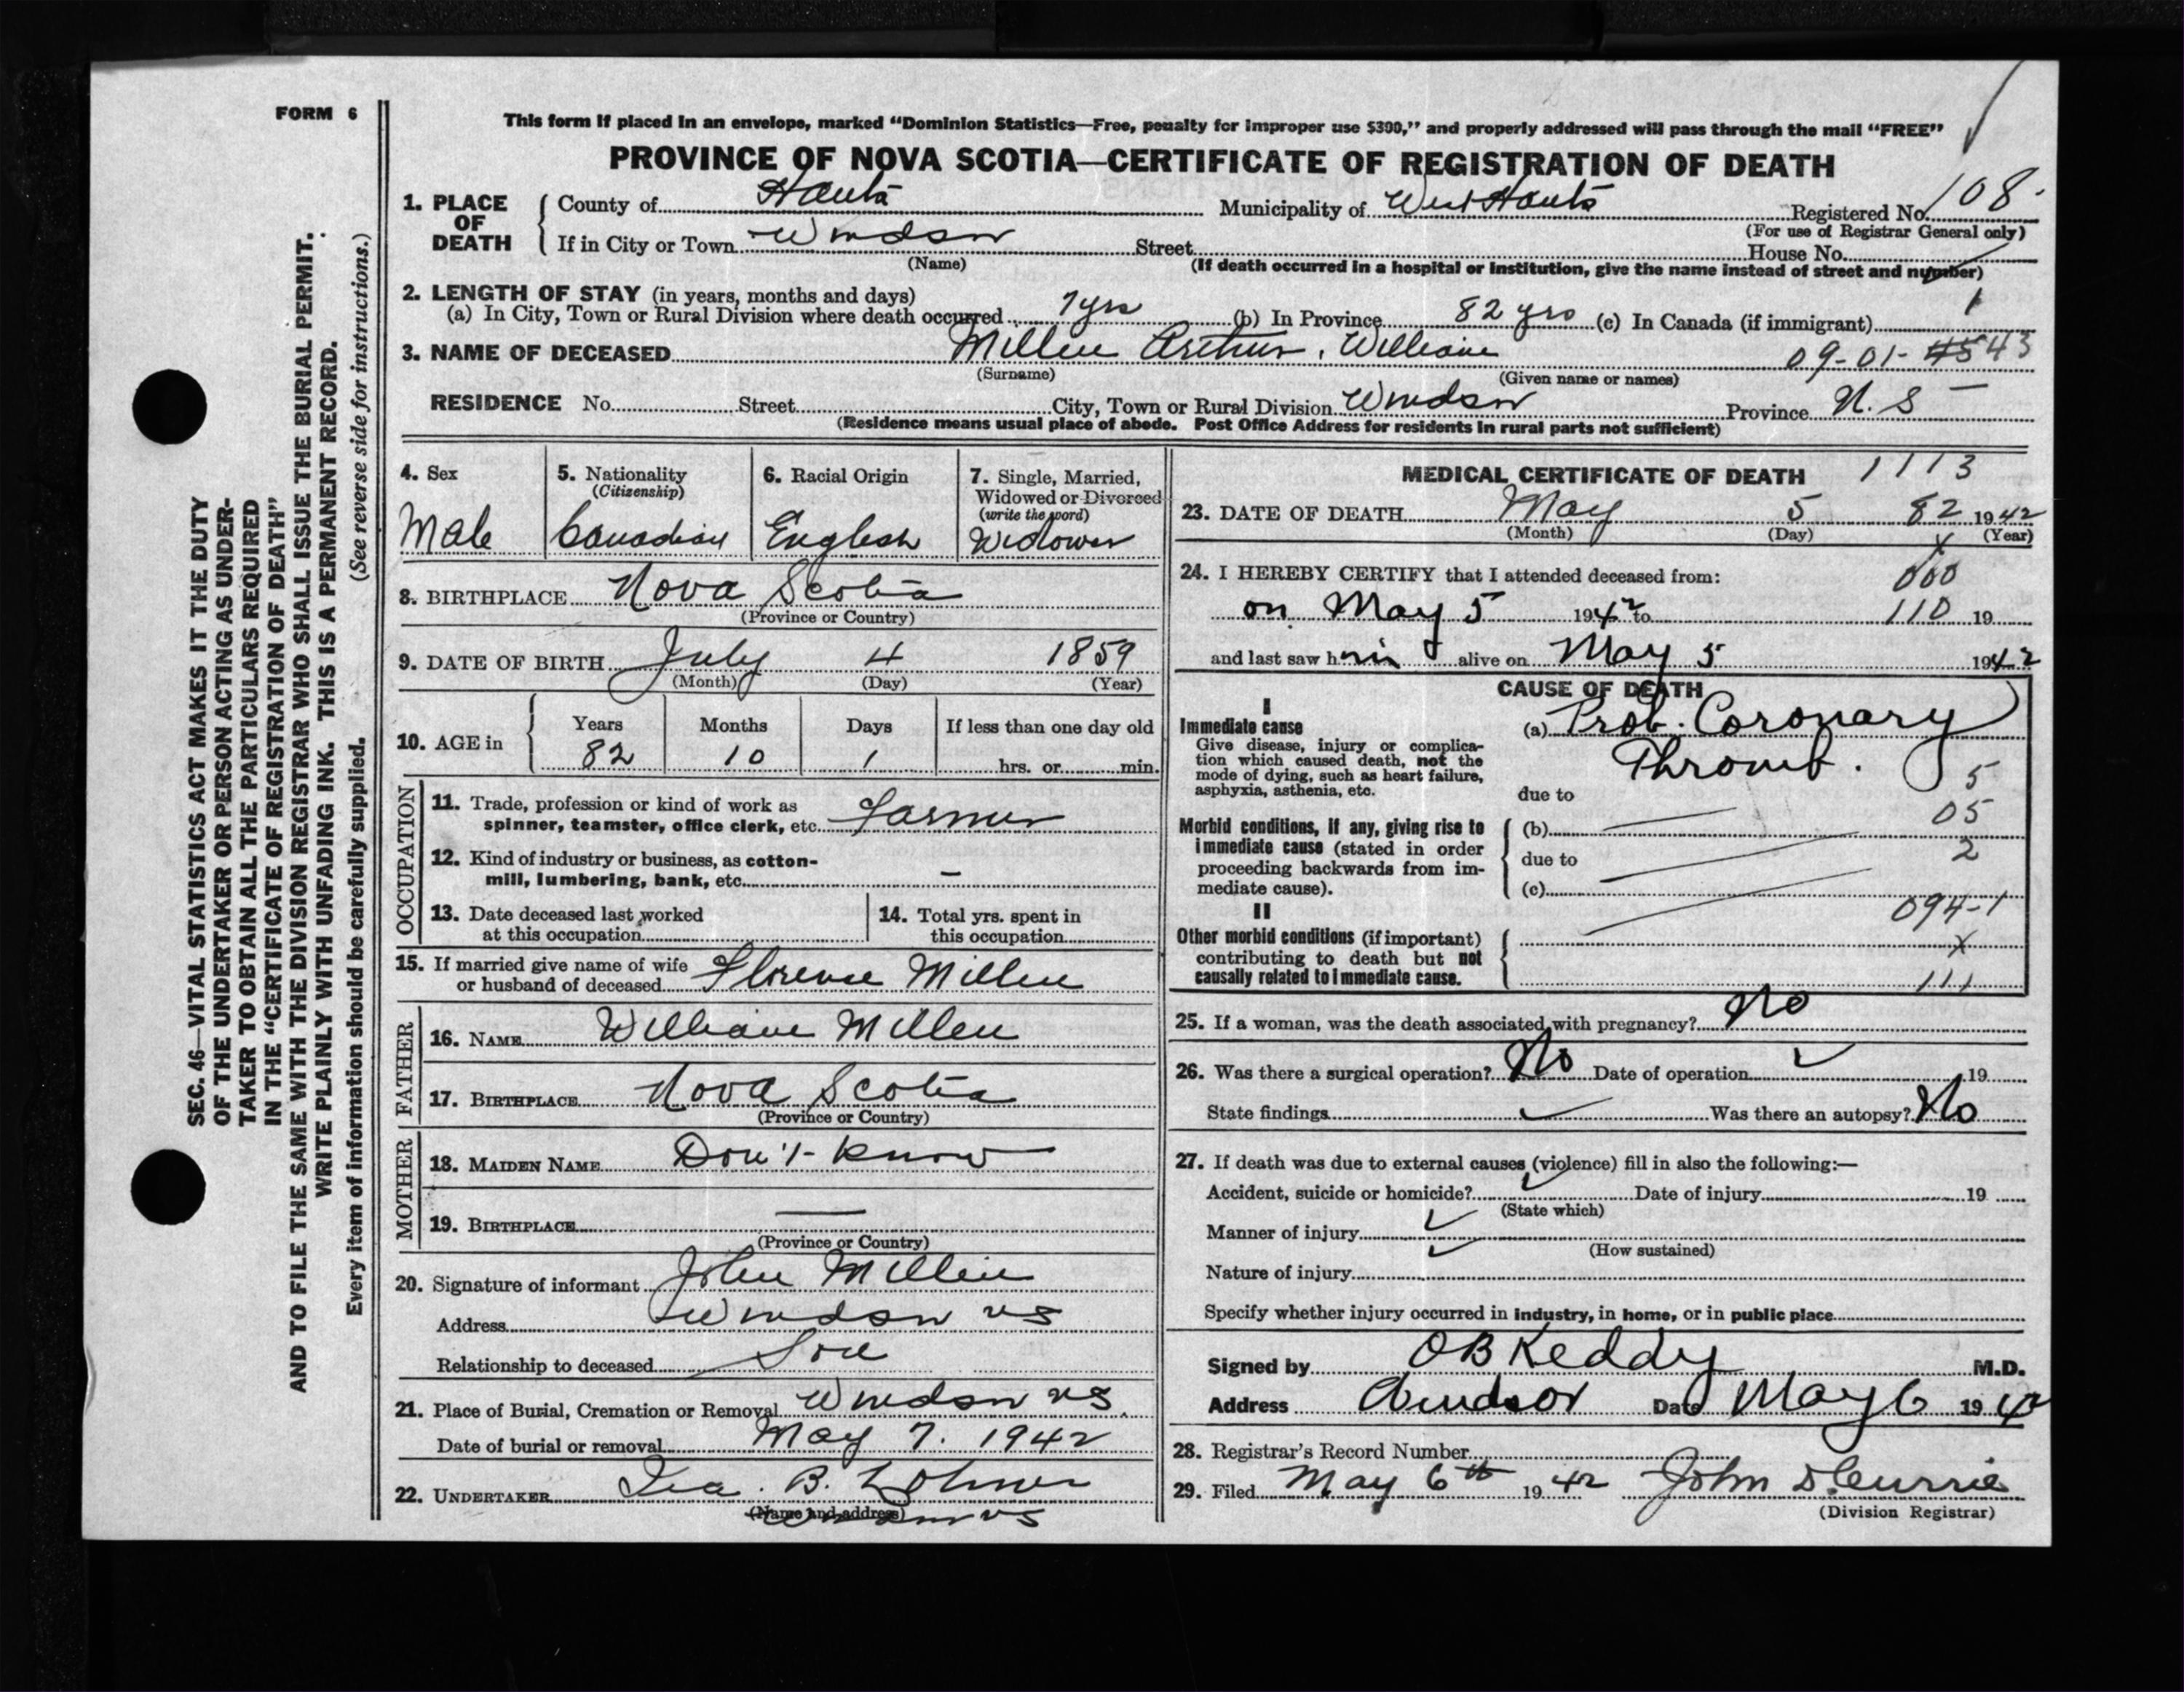 FORM 6
This form if placed in an envelope, marked "Dominion Statistics—Free, penalty for improper use $300," and properly addressed will pass through the mail "FREE"
PROVINCE OF NOVA SCOTIA—CERTIFICATE OF REGISTRATION OF DEATH
1. PLACE OF DEATH County of Hants Municipality of West Hants Registered No. 108
(For use of Registrar General only)
If in City or Town Windsor Street House No.
(Name) (If death occurred in a hospital or institution, give the name instead of street and number)
2. LENGTH OF STAY (in years, months and days)
(a) In City, Town or Rural Division where death occurred yrs (b) In Province 82 yrs (c) In Canada (if immigrant) 1
3. NAME OF DECEASED Millen Arthur, William 09-01- 43
(Surname) (Given name or names)
RESIDENCE No. Street City, Town or Rural Division Windsor Province N.S
(Residence means usual place of abode. Post Office Address for residents in rural parts not sufficient)
4. Sex
Male
5. Nationality
(Citizenship)
Canadian
6. Racial Origin
English
7. Single, Married,
Widowed or Divorced
(write the word)
Widower
8. BIRTHPLACE Nova Scotia
(Province or Country)
9. DATE OF BIRTH July 4 1859
(Month) (Day) (Year)
10. AGE in Years Months Days If less than one day old
82 10 1 hrs. or min.
OCCUPATION
11. Trade, profession or kind of work as
spinner, teamster, office clerk, etc. Farmer
12. Kind of industry or business, as cotton-
mill, lumbering, bank, etc. –
13. Date deceased last worked
at this occupation
14. Total yrs. spent in
this occupation
15. If married give name of wife
or husband of deceased Florence Millen
FATHER
16. NAME William Millen
17. BIRTHPLACE Nova Scotia
(Province or Country)
MOTHER
18. MAIDEN NAME Don't know
19. BIRTHPLACE —
(Province or Country)
20. Signature of informant John Millen
Address Windsor NS
Relationship to deceased Son
21. Place of Burial, Cremation or Removal Windsor NS.
Date of burial or removal May 7. 1942
22. UNDERTAKER Ira. B.
(Name and address) Windsor NS
MEDICAL CERTIFICATE OF DEATH 1113
23. DATE OF DEATH May 5 82 1942
(Month) (Day) (Year)
x
24. I HEREBY CERTIFY that I attended deceased from: 000
on May 5 1942 to 110 19
and last saw him alive on May 5 1942
CAUSE OF DEATH
I
Immediate cause
Give disease, injury or complica-
tion which caused death, not the
mode of dying, such as heart failure,
asphyxia, asthenia, etc.
(a) Prob. Coronary
Thromb. 5
due to
05
Morbid conditions, if any, giving rise to
immediate cause (stated in order
proceeding backwards from im-
mediate cause).
(b)
due to 2
(c)
094-1
II
Other morbid conditions (if important)
contributing to death but not
causally related to immediate cause.
x
111
25. If a woman, was the death associated with pregnancy? No
26. Was there a surgical operation? No Date of operation 19
State findings Was there an autopsy? No
27. If death was due to external causes (violence) fill in also the following:—
Accident, suicide or homicide? Date of injury 19
(State which)
Manner of injury
(How sustained)
Nature of injury
Specify whether injury occurred in industry, in home, or in public place
Signed by OB Keddy M.D.
Address Windsor Date May 6 1942
28. Registrar's Record Number
29. Filed May 6th 1942 John D. Currie
(Division Registrar)
SEC. 46—VITAL STATISTICS ACT MAKES IT THE DUTY
OF THE UNDERTAKER OR PERSON ACTING AS UNDER-
TAKER TO OBTAIN ALL THE PARTICULARS REQUIRED
IN THE "CERTIFICATE OF REGISTRATION OF DEATH"
AND TO FILE THE SAME WITH THE DIVISION REGISTRAR WHO SHALL ISSUE THE BURIAL PERMIT.
WRITE PLAINLY WITH UNFADING INK. THIS IS A PERMANENT RECORD.
Every item of information should be carefully supplied. (See reverse side for instructions.)